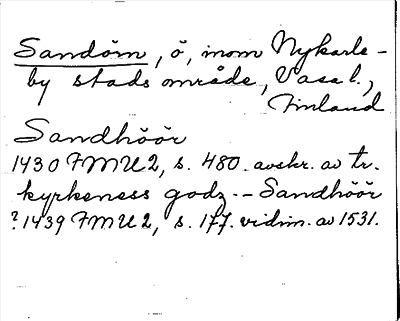 Sandöm, ö, inom Nykarle-
by stads område, Vasa l.,
Finland
Sandhöör
1430 FMU 2, s. 480. avskr. av tr.
kyrkeness godz -- Sandhöör
? 1439 FMU 2, s. 177. vidim. av 1531.